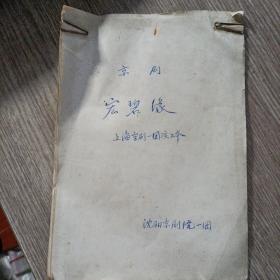 京剧
宏碧缘
上海京剧一团演出本
沈阳京剧院一团